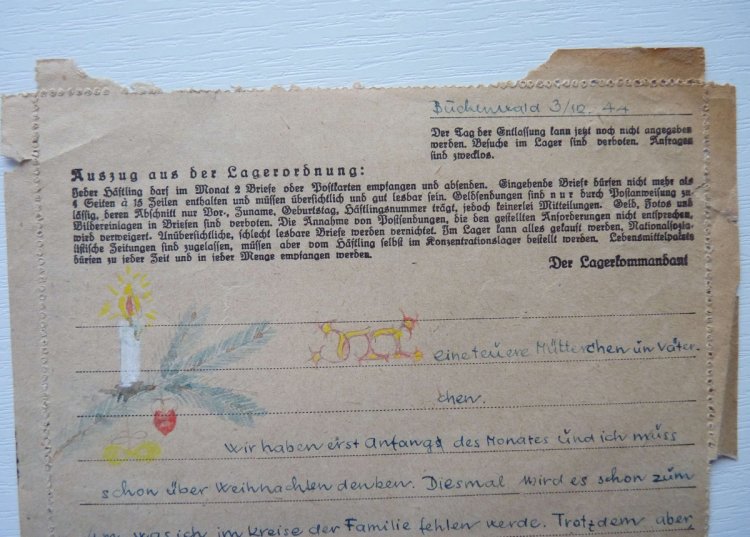 Büchenwald 3/12. 44
Der Tag der Entlassung kann jetzt noch nicht angegeben
werden. Besuche im Lager sind verboten. Anfragen
sind zwecklos.
Auszug aus der Lagerordnung:
Jeder Häftling darf im Monat 2 Briefe oder Postkarten empfangen und absenden. Eingehende Briefe dürfen nicht mehr als
4 Seiten à 15 Zeilen enthalten und müssen übersichtlich und gut lesbar sein. Geldsendungen sind nur durch Postanweisung zu-
lässig, deren Abschnitt nur Vor-, Zuname, Geburtstag, Häftlingsnummer trägt, jedoch keinerlei Mitteilungen. Geld, Fotos und
Bildereinlagen in Briefen sind verboten. Die Annahme von Postsendungen, die den gestellten Anforderungen nicht entsprechen,
wird verweigert. Unübersichtliche, schlecht lesbare Briefe werden vernichtet. Im Lager kann alles gekauft werden. Nationalsozia-
listische Zeitungen sind zugelassen, müssen aber vom Häftling selbst im Konzentrationslager bestellt werden. Lebensmittelpakete
dürfen zu jeder Zeit und in jeder Menge empfangen werden.
Der Lagerkommandant
Meine teuere Mütterchen ün Väter-
chen.
Wir haben erst Anfang des Monates ünd ich müss
schon über Weihnachten denken. Diesmal wird es schon züm
was ich im Kreise der Familie fehlen werde. Trotzdem aber